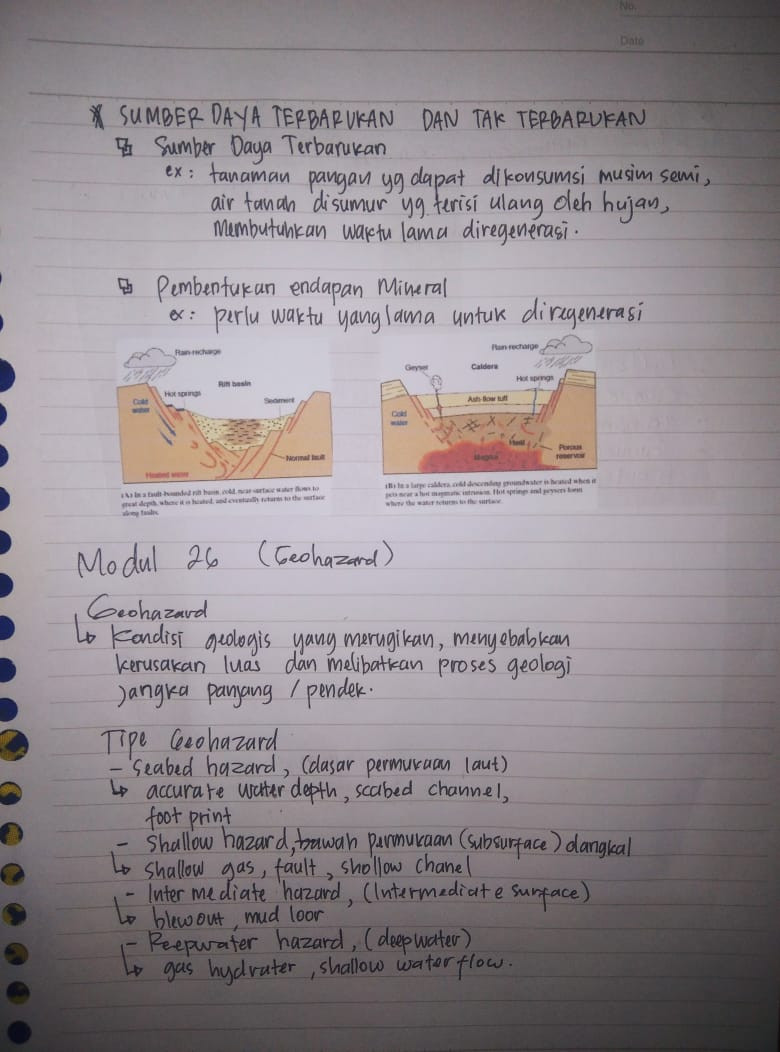 No.
Date
* SUMBER DAYA TERBARUKAN DAN TAK TERBARUKAN
Sumber Daya Terbarukan
ex : tanaman pangan yg dapat dikonsumsi musim semi,
air tanah disumur yg terisi ulang oleh hujan,
Membutuhkan waktu lama diregenerasi.
Pembentukan endapan Mineral
ex : perlu waktu yang lama untuk diregenerasi
Rain-recharge
Hot springs
Rift basin
Cold water
Sediment
Normal fault
Heated water
(A) In a fault-bounded rift basin, cold, near-surface water flows to
great depth, where it is heated, and eventually returns to the surface
along faults.
Rain-recharge
Geyser
Caldera
Hot springs
Ash-flow tuff
Cold water
Heat
Magma
Porous reservoir
(B) In a large caldera, cold descending groundwater is heated when it
gets near a hot magmatic intrusion. Hot springs and geysers form
where the water returns to the surface.
Modul 26 (Geohazard)
Geohazard
↳ Kondisi geologis yang merugikan, menyebabkan
kerusakan luas dan melibatkan proses geologi
jangka panjang / pendek.
Tipe Geohazard
- Seabed hazard, (dasar permukaan laut)
↳ accurate water depth, seabed channel,
foot print
- Shallow hazard, bawah permukaan (subsurface) dangkal
↳ shallow gas, fault, shollow chanel
- Inter mediate hazard, (Intermediate surface)
↳ blewout, mud loor
- Reepwater hazard, (deepwater)
↳ gas hydrater, shallow water flow.